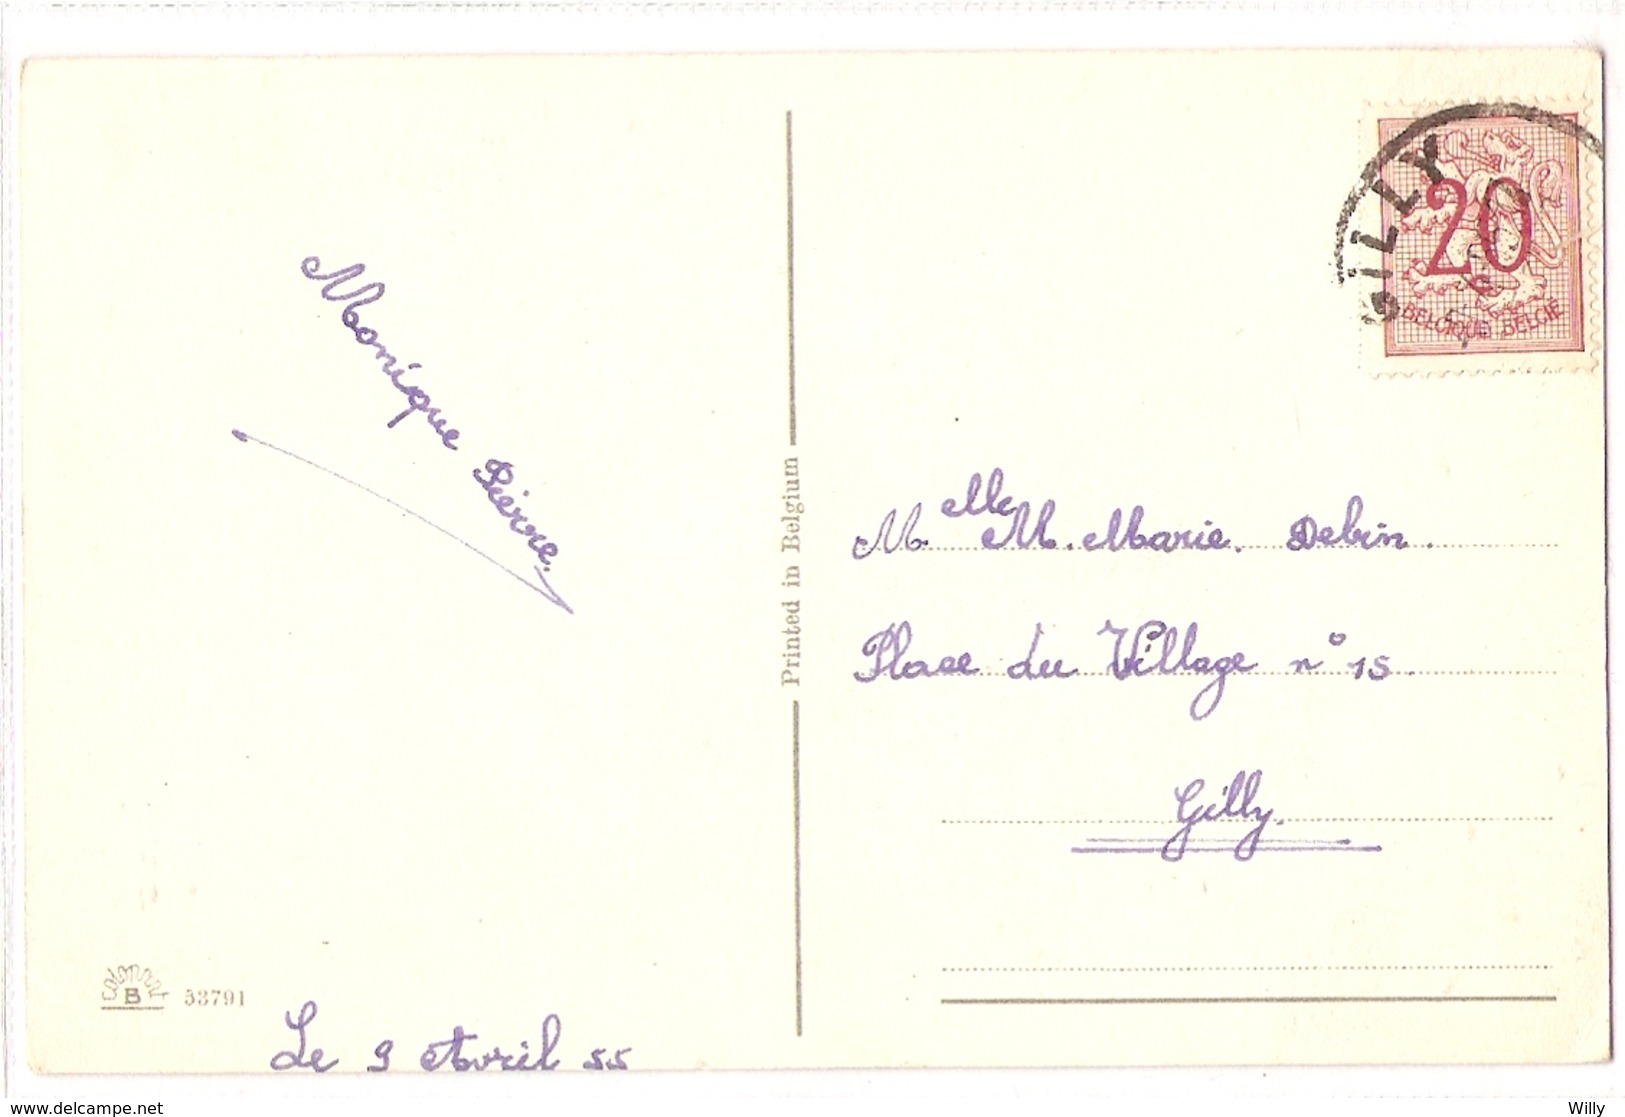 Monique Pierre.
Le 9 Avril 55
colorprint
B
53791
Printed in Belgium
GILLY
20
BELGIQUE BELGIE
Melle M. Marie. Debin.
Place du Village n° 15.
Gilly.
www.delcampe.net
Willy